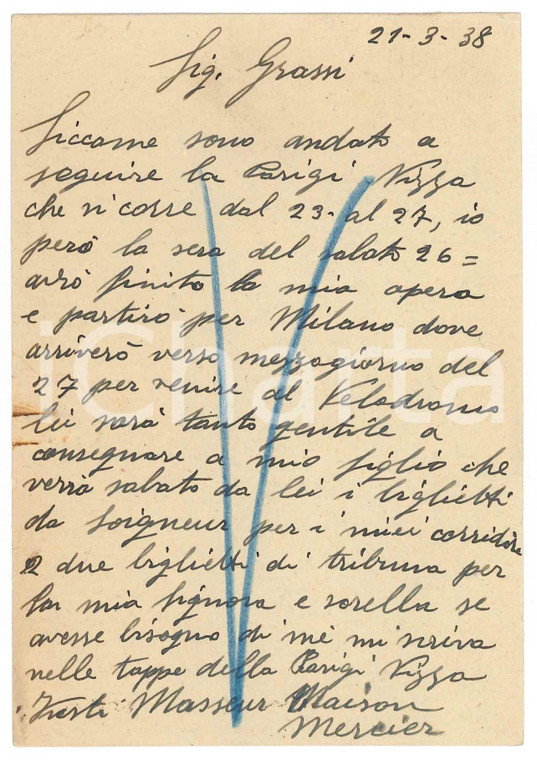 21-3-38
Sig. Grassi
Siccome sono andato a
seguire la Parigi Nizza
che si corse dal 23- al 27, io
però la sera del sabato 26=
avrò finito la mia opera
e partirò per Milano dove
arriverò verso mezzogiorno del
27 per venire al Velodromo
lei sarà tanto gentile a
consegnare a mio figlio che
verrà sabato da lei i biglietti
da Soigneur per i miei corridori
2 due biglietti di tribuna per
la mia Signora e sorella se
avesse bisogno di mè mi scriva
nelle tappe della Parigi Nizza
Masseur Maison
Mercier
iCharta